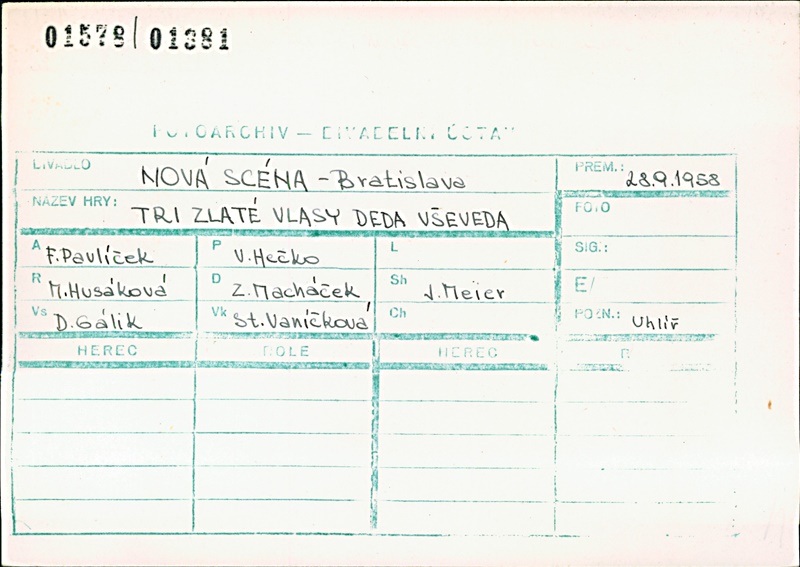 01578/01381
FOTOARCHIV — DIVADELNÍ ÚSTAV
DIVADLO NOVÁ SCÉNA – Bratislava PREM.: 28.9.1958
NÁZEV HRY: TRI ZLATÉ VLASY DEDA VŠEVEDA FOTO
A F. Pavlíček P V. Hečko L SIG.:
R M. Husáková D Z. Macháček Sh J. Meier E/
Vs D. Gálik Vk St. Vaníčková Ch POZN.: Uhlíř
HEREC ROLE HEREC R